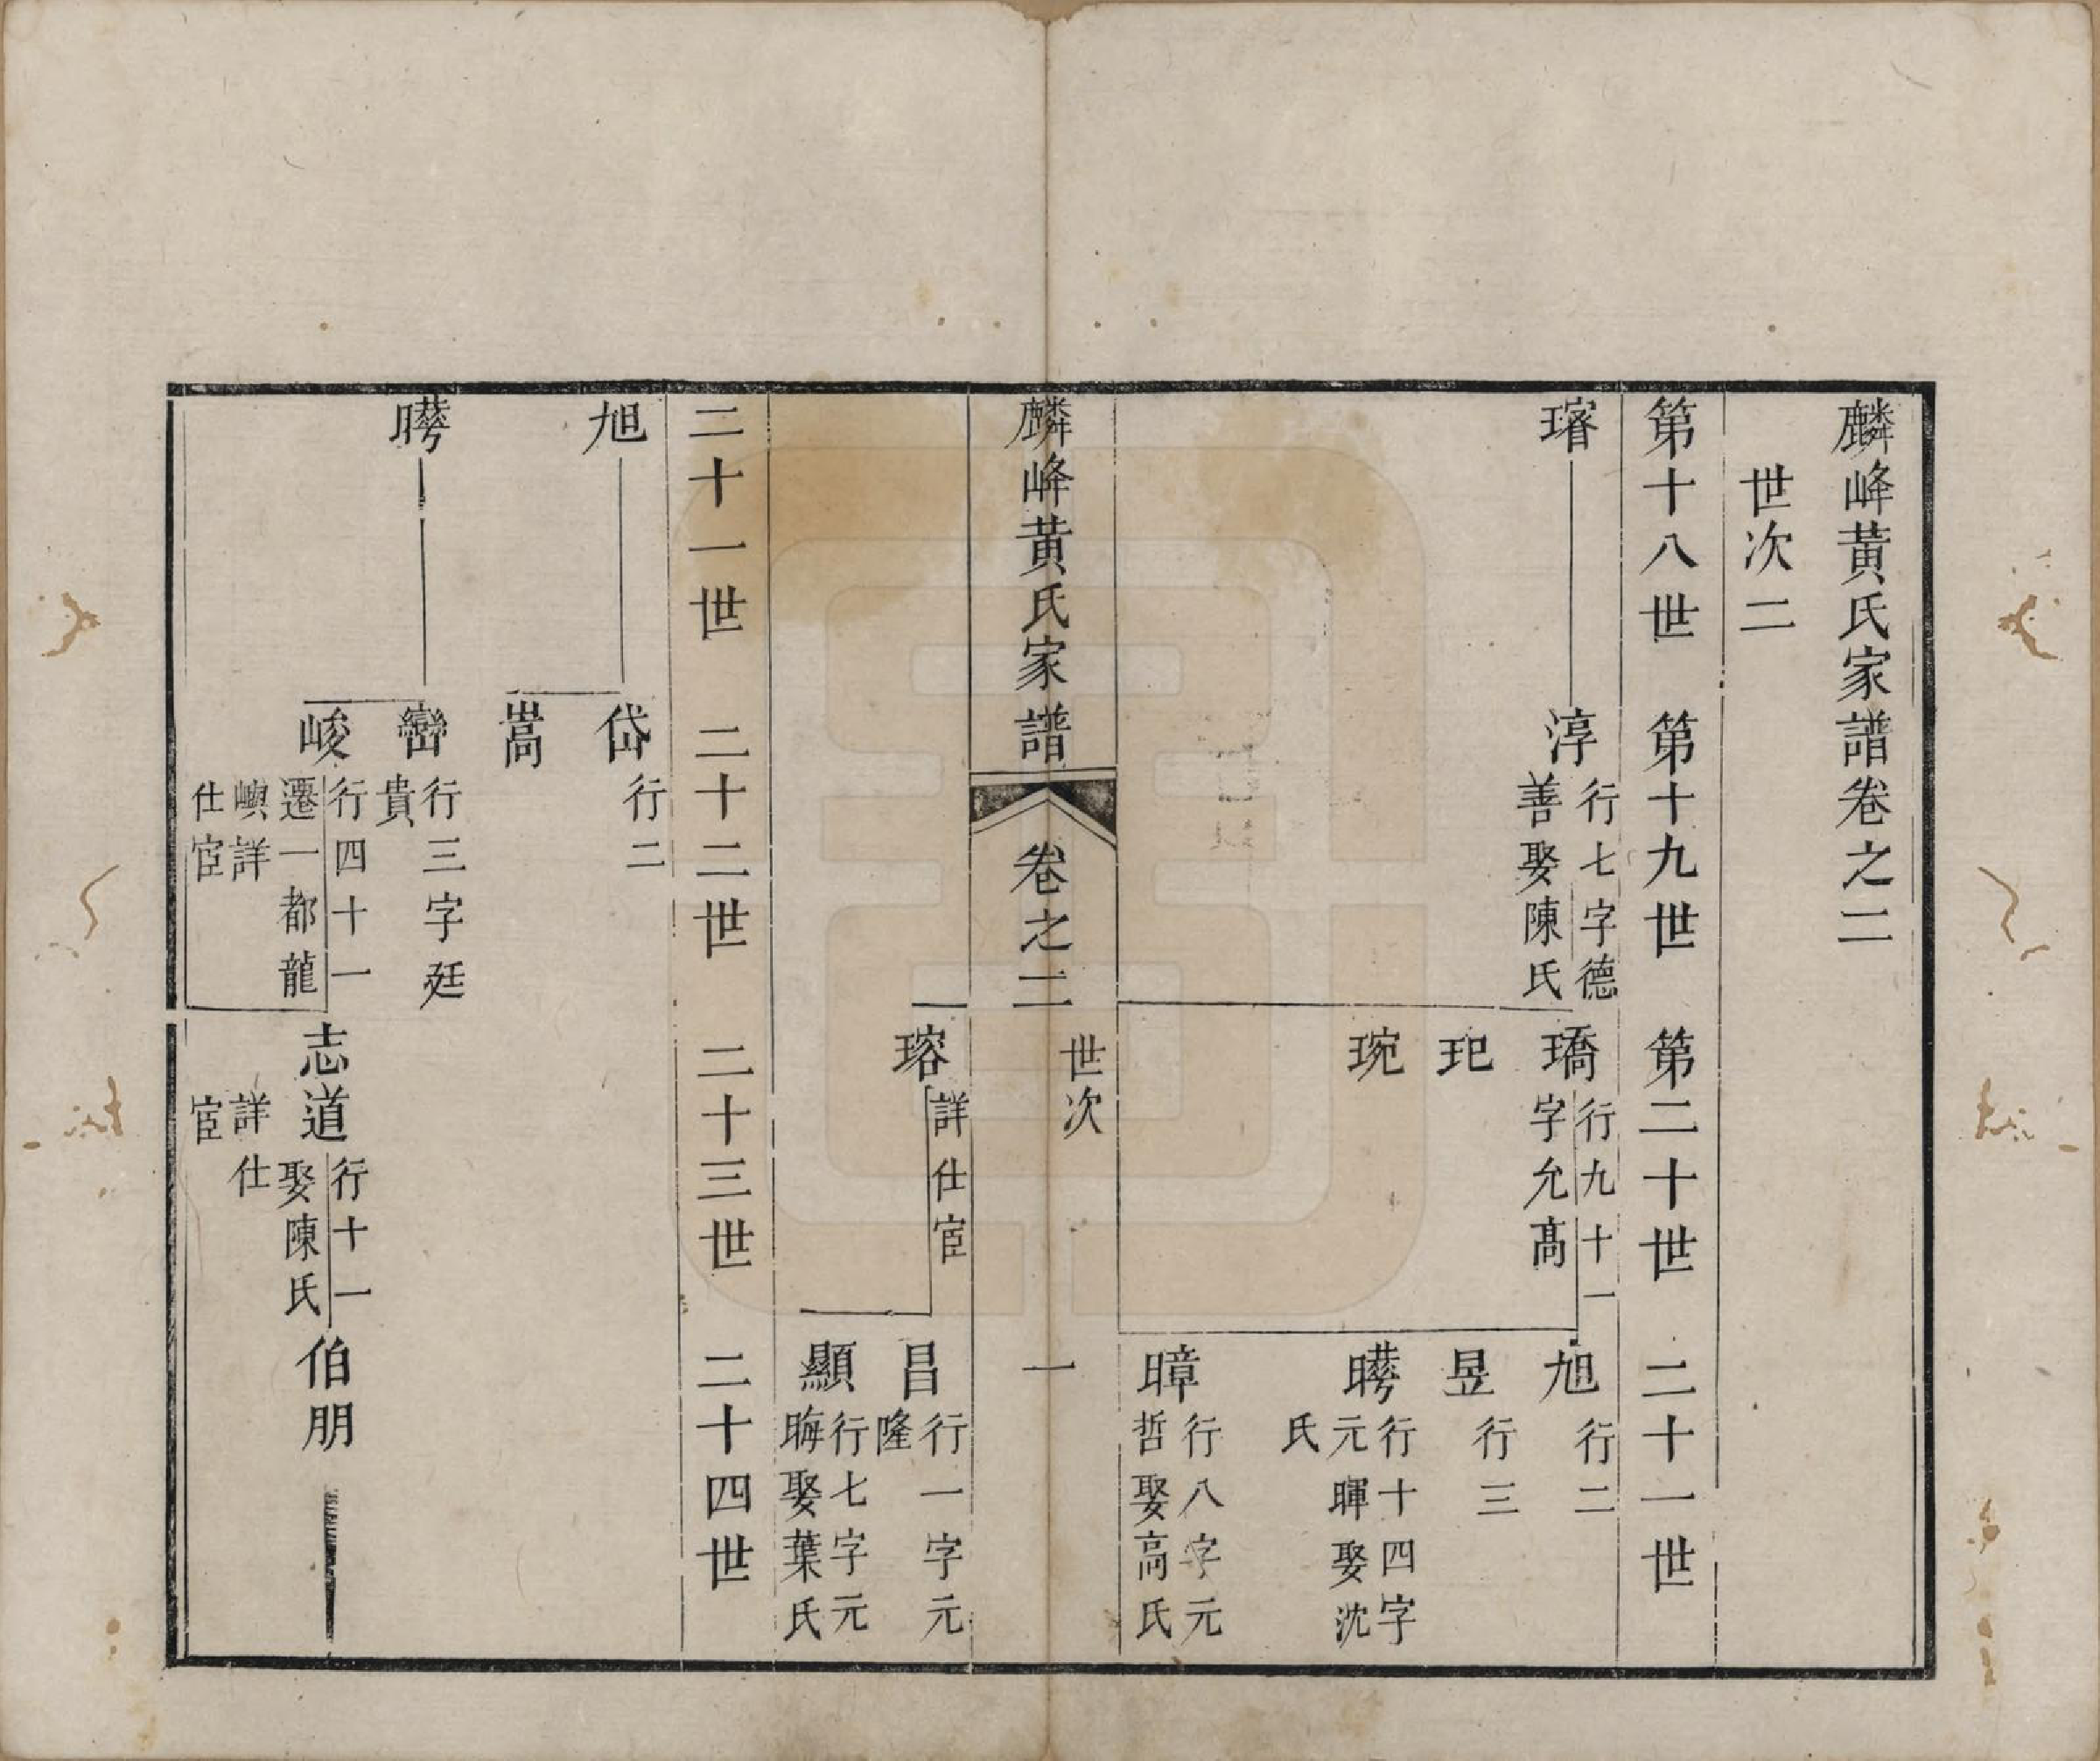 麟峰黃氏家譜卷之二
世次二
第十八世 第十九世 第二十世 二十一世
璿
淳 行七字德善娶陳氏
璚 行九十一字允高
玘
琬
旭 行二
昱 行三
行十四字元暉娶沈氏
暲 行八字元哲娶高氏
麟峰黃氏家譜 卷之二 世次 一
瑢 詳仕宦
昌 行一字元隆
顯 行七字元晦娶葉氏
二十一世 二十二世 二十三世 二十四世
旭
岱 行二
嵩
巒 行三字廷貴
峻 行四十一遷一都龍嶼詳仕宦
志道 行十一娶陳氏詳仕宦
伯朋